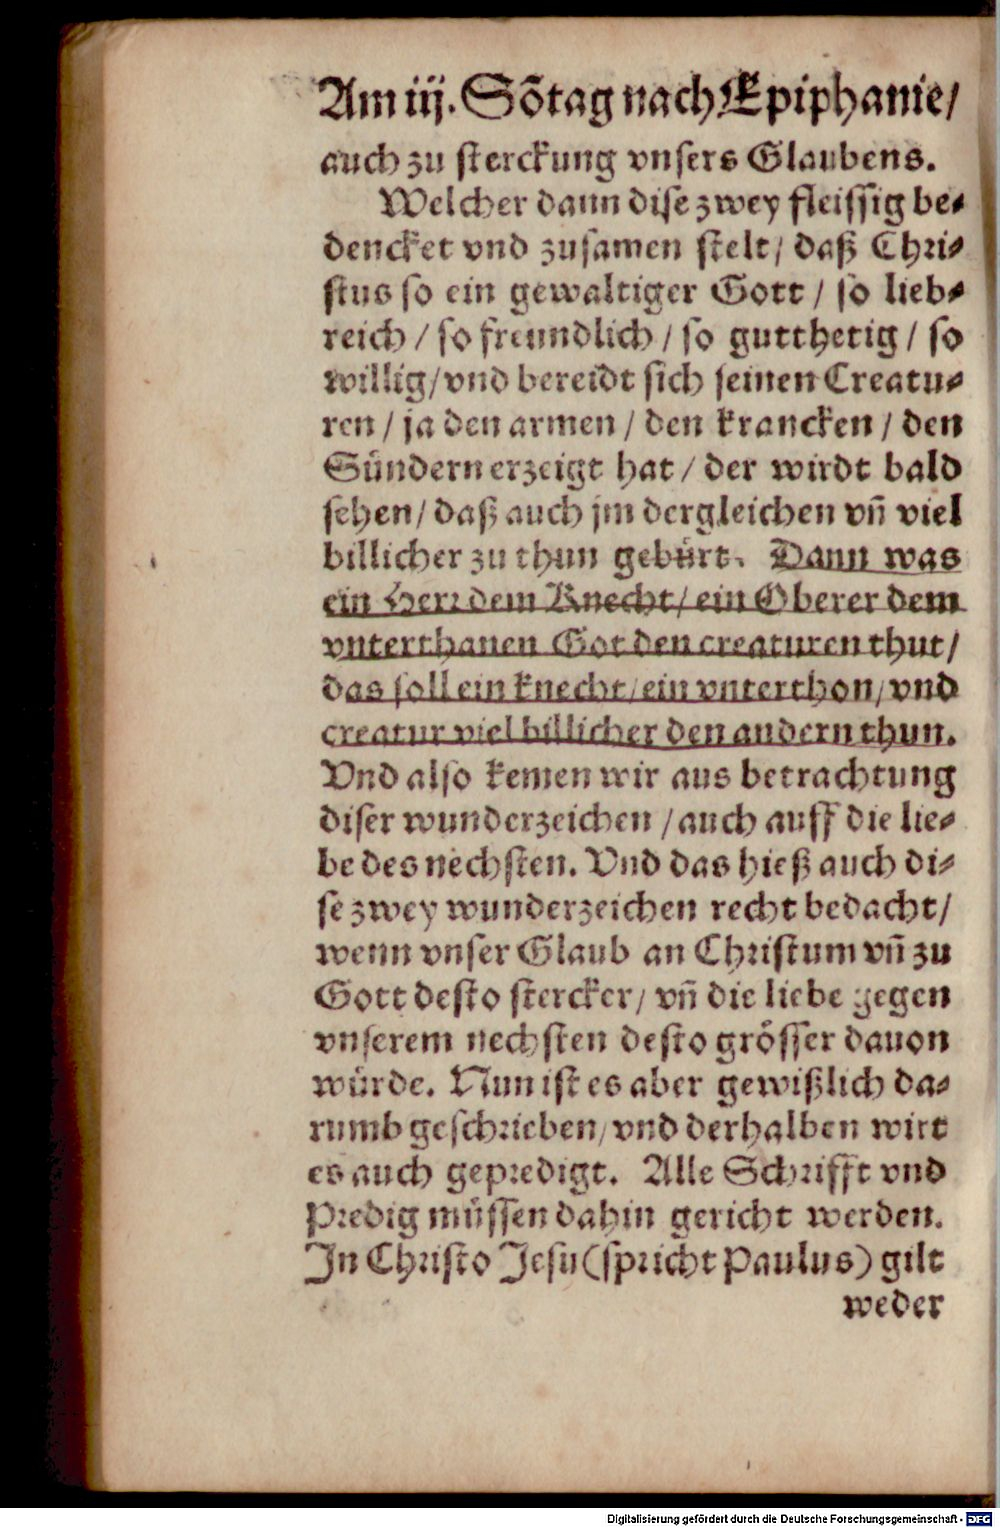 Am iij. Sõtag nach Epiphanie/
auch zu sterckung vnsers Glaubens.
Welcher dann dise zwey fleissig be-
dencket vnd zusamen stelt/ daß Chri-
stus so ein gewaltiger Gott / so lieb-
reich / so freundlich / so gutthetig / so
willig/ vnd bereidt sich seinen Creatu-
ren / ja den armen / den krancken / den
Sündern erzeigt hat / der wirdt bald
sehen/ daß auch jm dergleichen vñ viel
billicher zu thun gebürt. Dann was
ein Herr dem Knecht/ ein Oberer dem
vnterthanen Got den creaturen thut/
das soll ein knecht/ ein vnterthon/ vnd
creatur viel billicher den andern thun.
Vnd also kemen wir aus betrachtung
diser wunderzeichen / auch auff die lie-
be des nechsten. Vnd das hieß auch di-
se zwey wunderzeichen recht bedacht/
wenn vnser Glaub an Christum vñ zu
Gott desto stercker/ vñ die liebe gegen
vnserem nechsten desto grösser dauon
würde. Nun ist es aber gewißlich da-
rumb geschrieben/ vnd derhalben wirt
es auch gepredigt. Alle Schrifft vnd
Predig müssen dahin gericht werden.
In Christo Jesu (spricht Paulus) gilt
weder
Digitalisierung gefördert durch die Deutsche Forschungsgemeinschaft - DFG